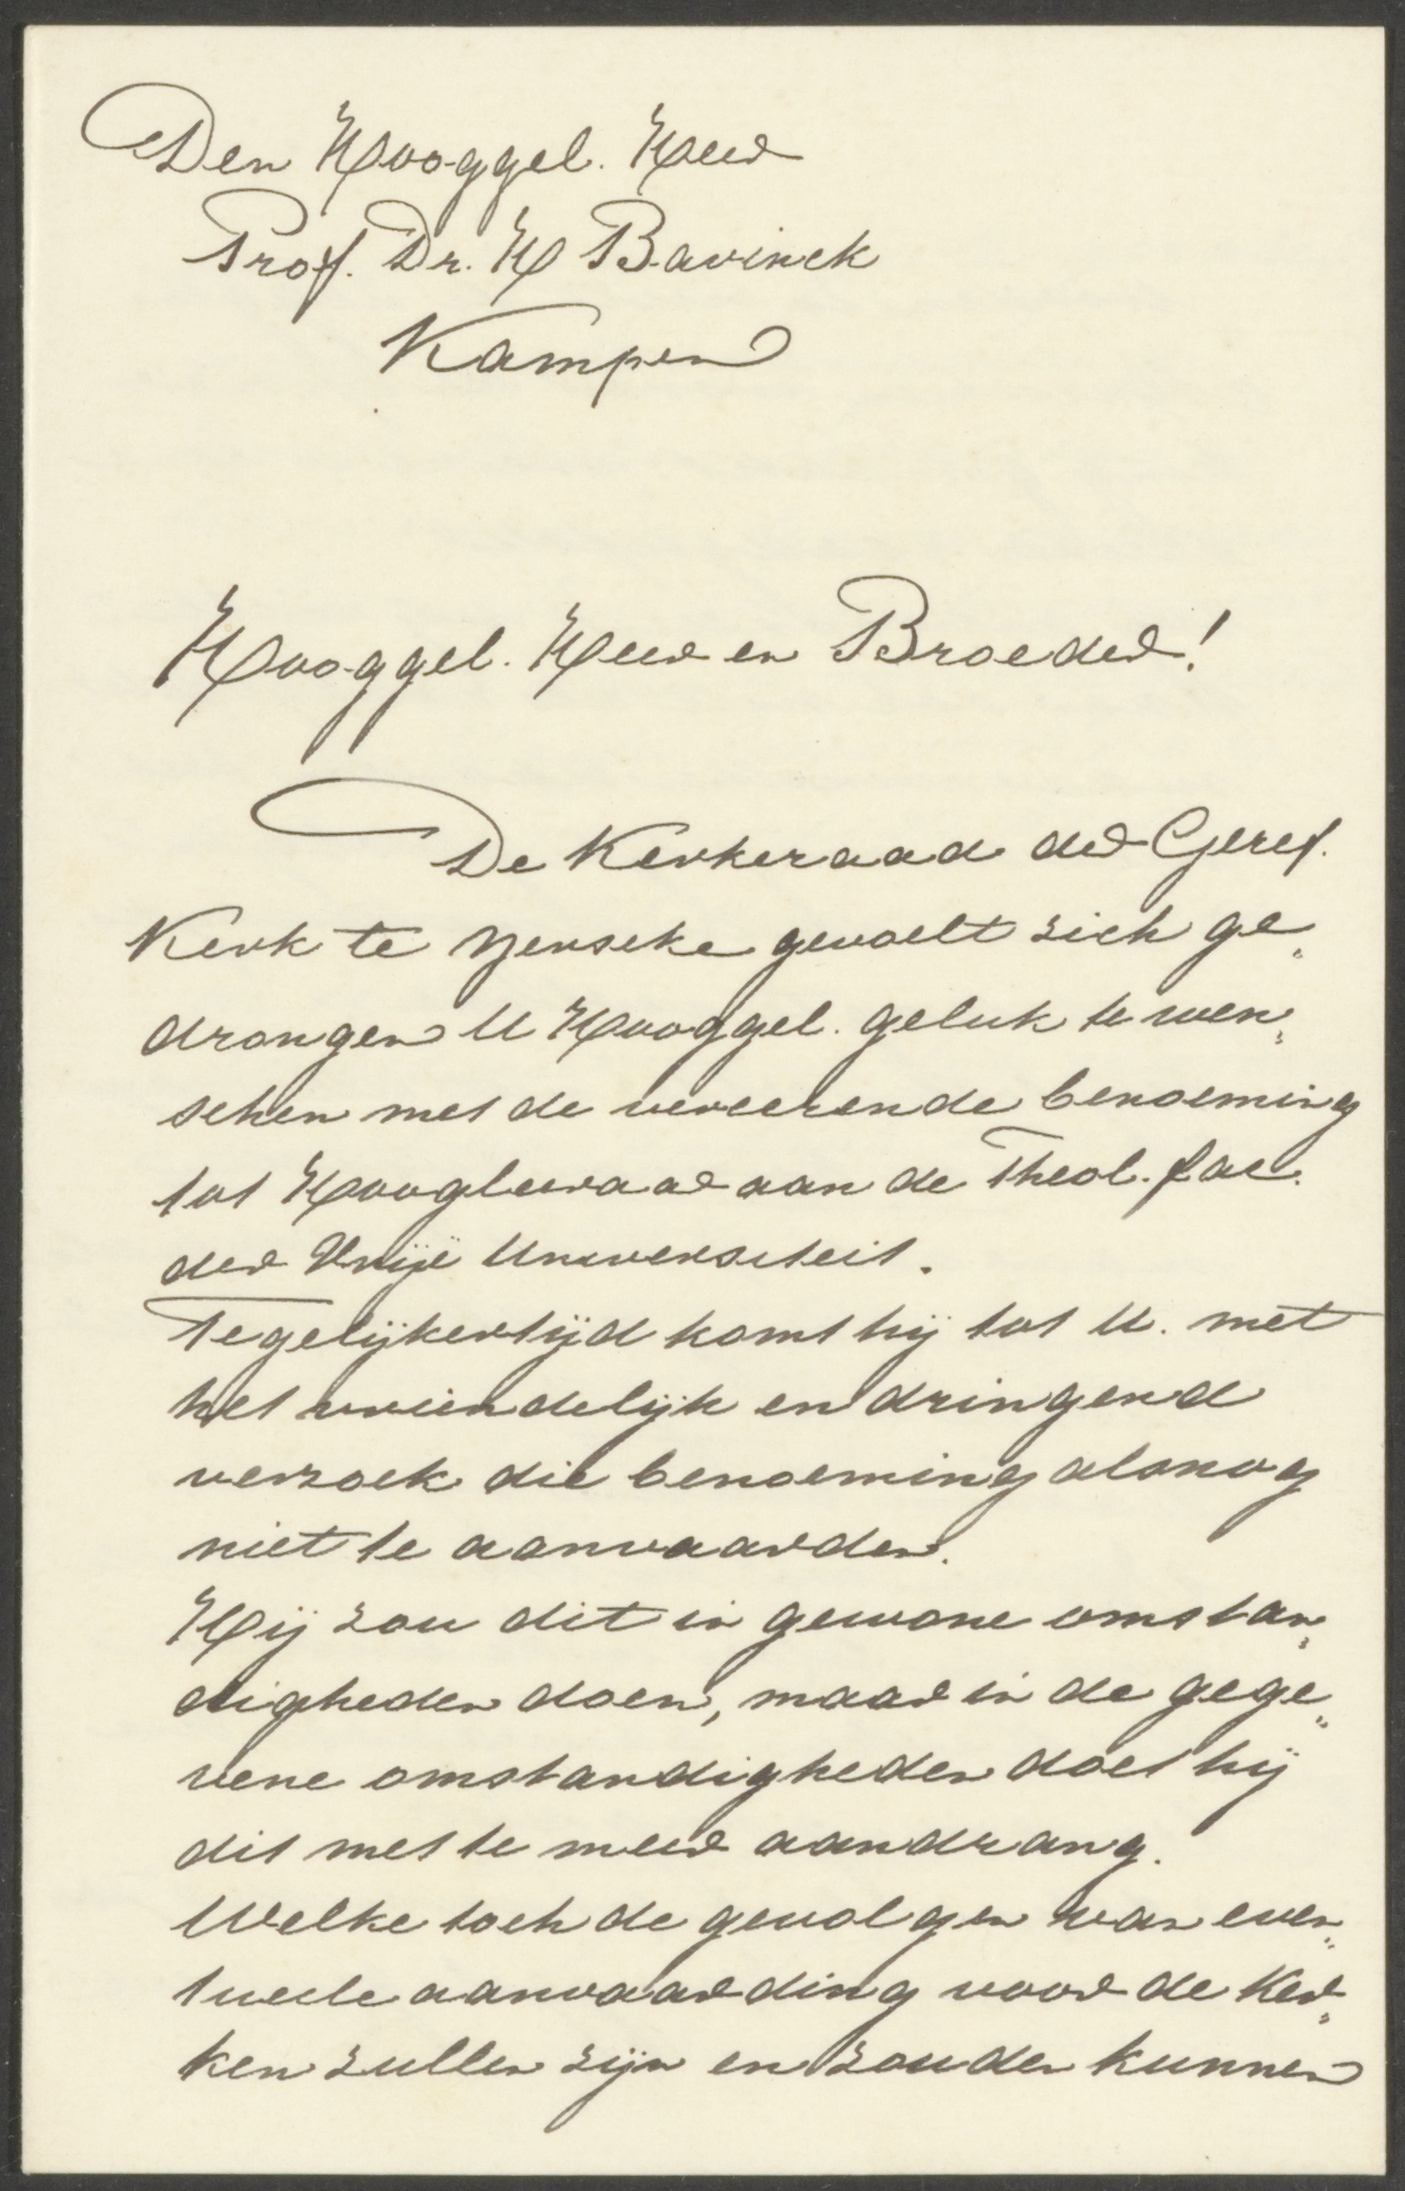 Den Hooggel. Heer
Prof. Dr. H Bavinck
Kampen
Hooggel. Heer en Broeder!
De Kerkeraad der Geref.
Kerk te Yerseke gevoelt zich ge„
drongen U Hooggel. geluk te wen„
schen met de vereerende benoeming
tot Hoogleeraar aan de Theol. fac.
der Vrije Universiteit.
Tegelijkertijd komt hij tot U. met
het vriendelijk en dringend
verzoek die benoeming alsnog
niet te aanvaarden.
Hij zou dit in gewone omstan„
digheden doen, maar in de gege„
vene omstandigheden doet hij
dit met te meer aandrang.
Welke toch de gevolgen van even„
tueele aanvaarding voor de Ker„
ken zullen zijn en zouden kunnen